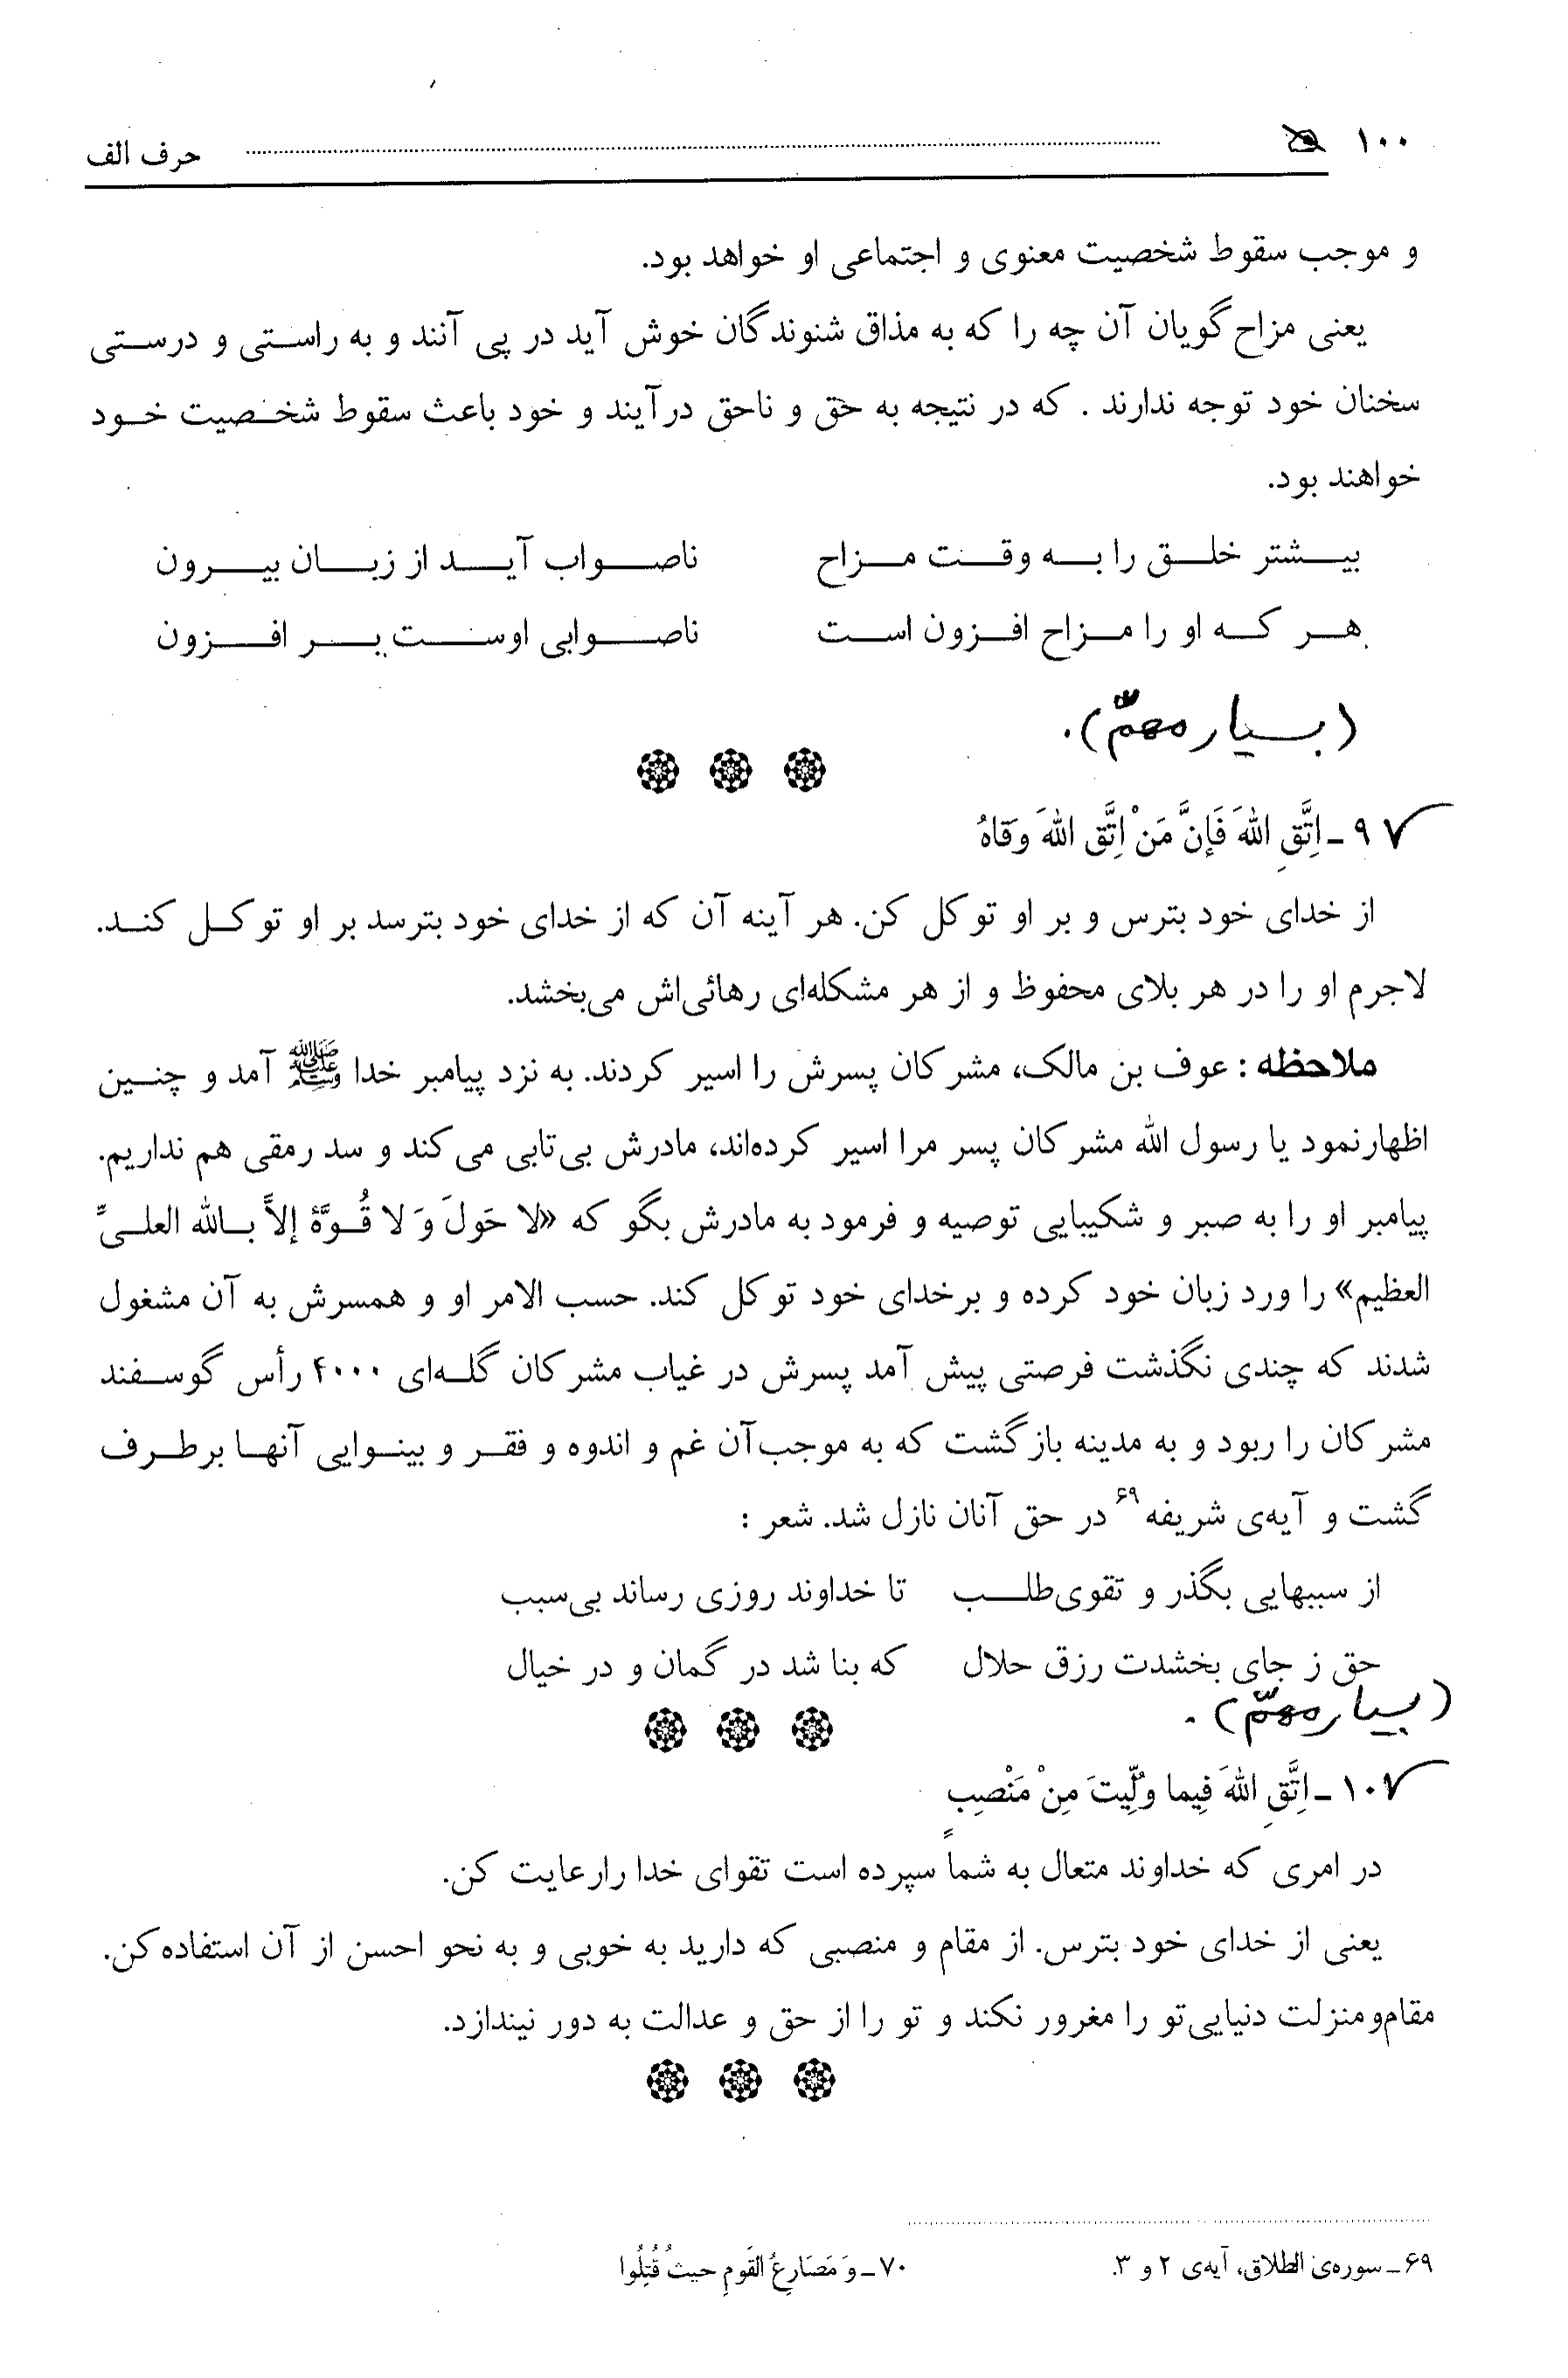 ۱۰۰ حرف الف
و موجب سقوط شخصیت معنوی و اجتماعی او خواهد بود.
یعنی مزاح گویان آن چه را که به مذاق شنوندگان خوش آید در پی آنند و به راستی و درستی
سخنان خود توجه ندارند . که در نتیجه به حق و ناحق درآیند و خود باعث سقوط شخصیت خود
خواهند بود.
بیشتر خلق را به وقت مزاح ناصواب آید از زبان بیرون
هر که او را مزاح افزون است ناصوابی اوست بر افزون
(بسیار مهمّ).
۹۷ـ اِتَّقِ اللهَ فَإِنَّ مَنْ اِتَّقِ اللهَ وَقاهُ
از خدای خود بترس و بر او توکل کن. هر آینه آن که از خدای خود بترسد بر او توکل کند.
لاجرم او را در هر بلای محفوظ و از هر مشکله‌ای رهائی‌اش می‌بخشد.
ملاحظه : عوف بن مالک، مشرکان پسرش را اسیر کردند. به نزد پیامبر خدا ﷺ آمد و چنین
اظهارنمود یا رسول الله مشرکان پسر مرا اسیر کرده‌اند، مادرش بی‌تابی می‌کند و سد رمقی هم نداریم.
پیامبر او را به صبر و شکیبایی توصیه و فرمود به مادرش بگو که «لا حَولَ وَ لا قُوَّةَ إلاَّ بالله العلیِّ
العظیم» را ورد زبان خود کرده و برخدای خود توکل کند. حسب الامر او و همسرش به آن مشغول
شدند که چندی نگذشت فرصتی پیش آمد پسرش در غیاب مشرکان گله‌ای ۴۰۰۰ رأس گوسفند
مشرکان را ربود و به مدینه بازگشت که به موجب آن غم و اندوه و فقر و بینوایی آنها برطرف
گشت و آیه‌ی شریفه۶۹ در حق آنان نازل شد. شعر :
از سببهایی بگذر و تقوی‌طلب تا خداوند روزی رساند بی‌سبب
حق ز جای بخشدت رزق حلال که بنا شد در گمان و در خیال
(بسیار مهمّ).
۱۰۷ـ اِتَّقِ اللهَ فِیما وُلِّیتَ مِنْ مَنْصِبٍ
در امری که خداوند متعال به شما سپرده است تقوای خدا رارعایت کن.
یعنی از خدای خود بترس. از مقام و منصبی که دارید به خوبی و به نحو احسن از آن استفاده کن.
مقام‌ومنزلت دنیایی‌تو را مغرور نکند و تو را از حق و عدالت به دور نیندازد.
۶۹ـ سوره‌ی الطلاق، آیه‌ی ۲ و ۳. ۷۰ـ وَ مَصَارِعُ القَومِ حیثُ قُتِلُوا